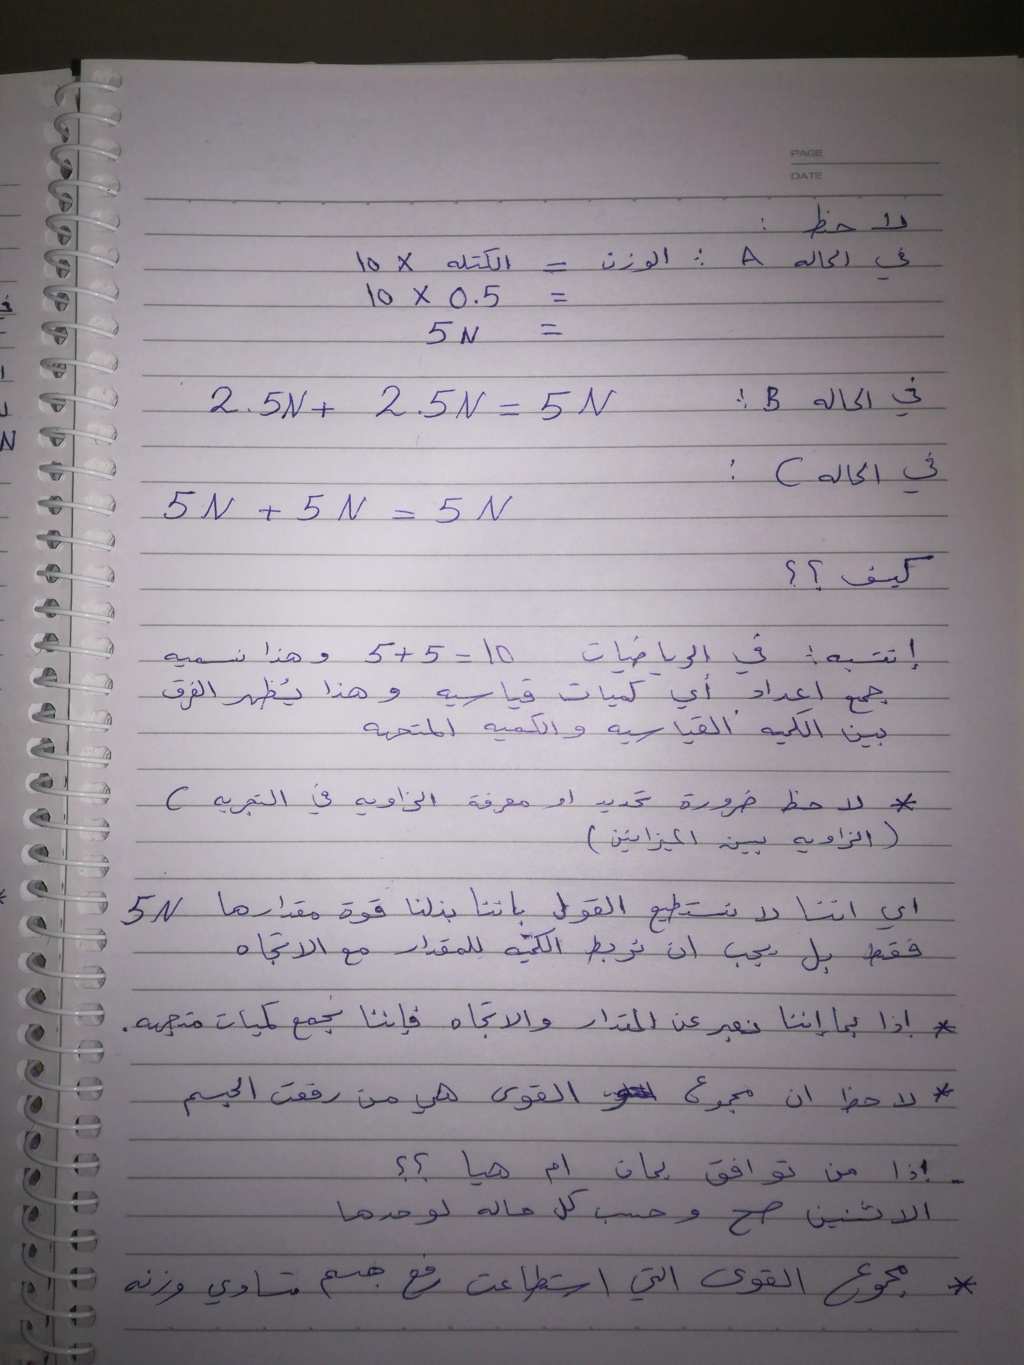 PAGE
DATE
لاحظ :
في الحاله A : الوزن = الكتله × 10
= 0.5 × 10
= 5N
في الحاله B : 2.5N + 2.5N = 5N
في الحاله C :
5N + 5N = 5N
كيف ؟؟
إنتبه : في الرياضيات 5+5=10 وهذا نسميه
جمع اعداد أي كميات قياسيه وهذا يُظهر الفرق
بين الكميه القياسيه والكميه المتجهه
* لاحظ ضرورة تحديد او معرفة الزاويه في التجربه C
(الزاويه بين الميزانين)
اي اننا لا نستطيع القول باننا بذلنا قوة مقدارها 5N
فقط بل يجب ان نربط الكميّه للمقدار مع الاتجاه
* إذا بما إننا نعبر عن المقدار والاتجاه فإننا نجمع كميات متجهه.
* لاحظ ان مجموع القوى هي من رفعت الجسم
- إذا من توافق يمان ام هيا ؟؟
الاثنين صح وحسب كل حاله لوحدها
* مجموع القوى التي استطاعت رفع جسم تساوي وزنه
في
N
*